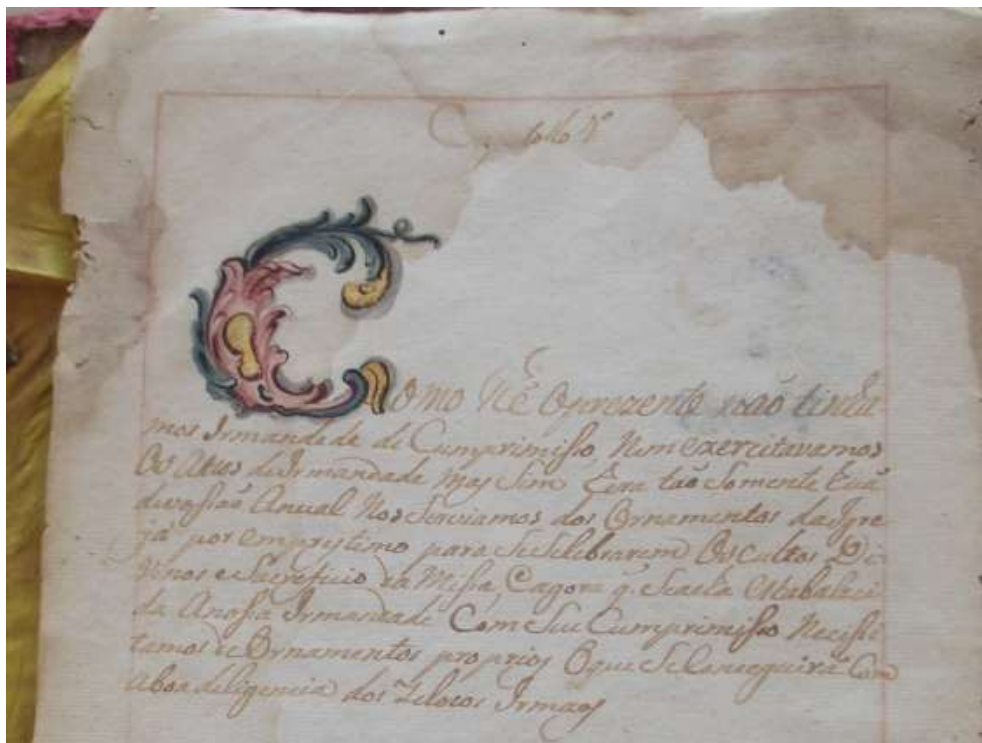 C tollo Vº
Como Athe Oprezente não tinha-
mos Irmandade de Cumprimisso, Nem exercitavamos
Os Atos de Irmandade Mas Sim Éera tão Somente huã
devossão Anual Nos Serviamos dos Ornamentos da Igre-
já por emprestimo para Se Selebrarem Os Cultos Di-
vinos e Sacreficio da Missa, E agora q. Seacha Estabaleci-
da Anossa Irmandade Com Seu Cumprimisso Necessi-
tamos de Ornamentos proprios Oque Se Conseguirá Com
aboa deligencia dos Zelozos Irmaos